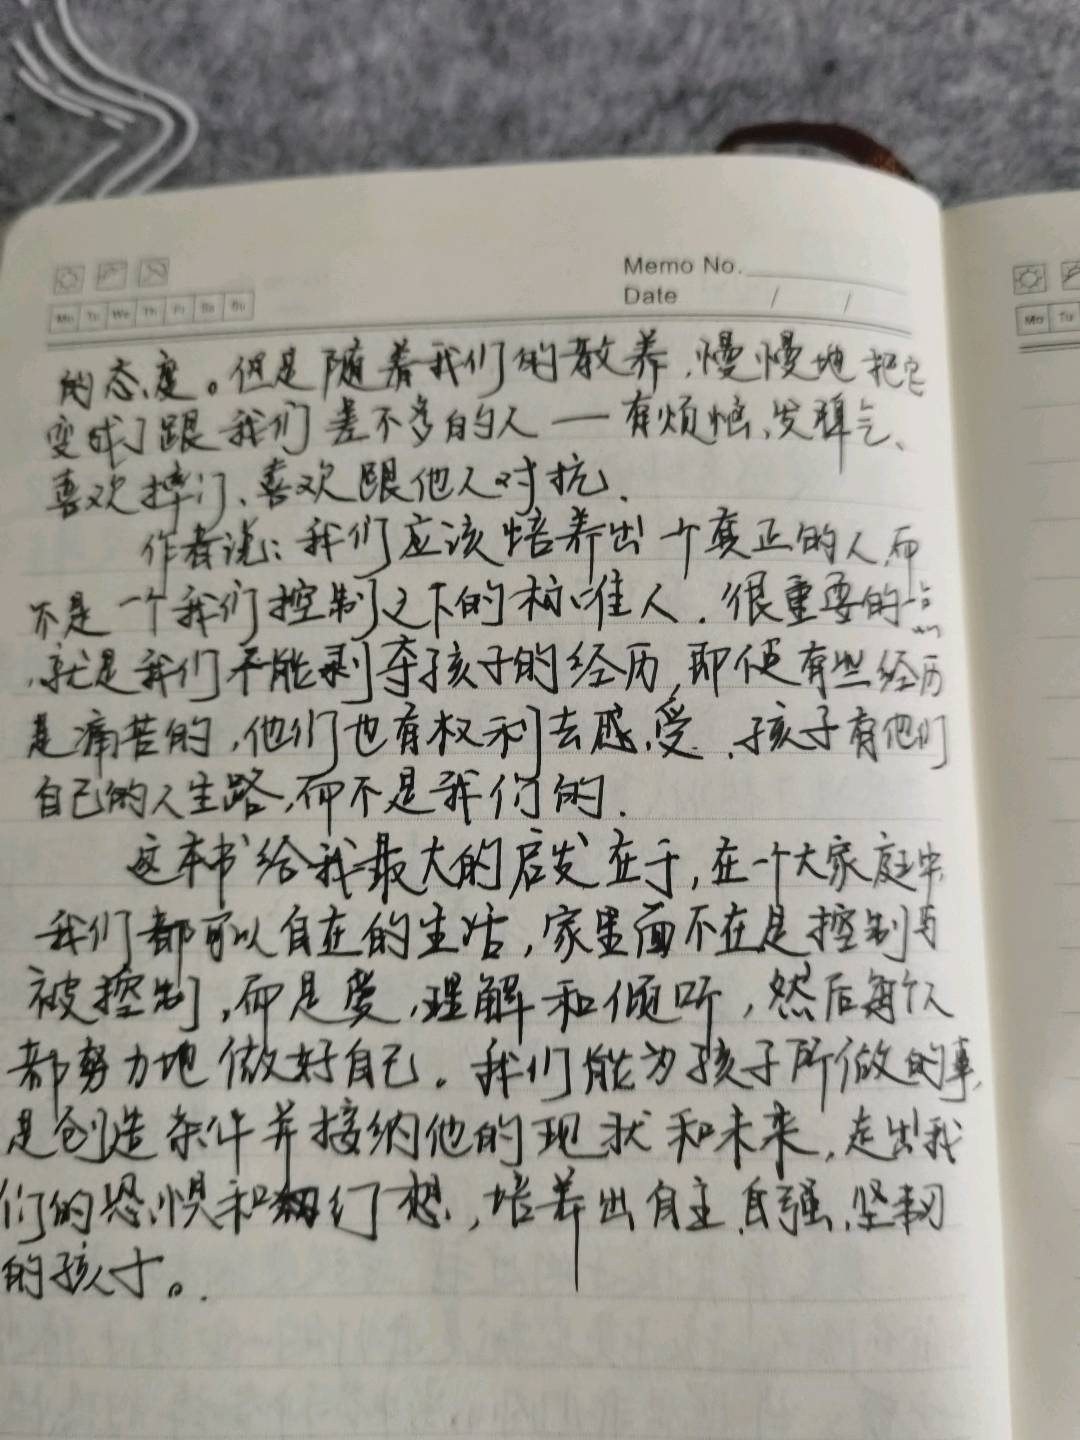 Memo No.
Date / /
Mo Tu We Th Fr Sa Su
Mo Tu
的态度。但是随着我们的教养,慢慢地把它
变成了跟我们差不多的人一有烦恼、发脾气、
喜欢摔门、喜欢跟他人对抗.
作者说:我们应该培养出一个真正的人,而
不是一个我们控制之下的标准人.很重要的一点
,就是我们不能剥夺孩子的经历,即便有些经历
是痛苦的,他们也有权利去感受.孩子有他们
自己的人生路,而不是我们的.
这本书给我最大的启发在于,在一个大家庭中,
我们都可以自在的生活,家里面不在是控制与
被控制,而是爱,理解和倾听,然后每个人
都努力地做好自己。我们能为孩子所做的事,
是创造条件并接纳他的现状和未来,走出我
们的恐惧和幻想,培养出自主、自强、坚韧
的孩子。.